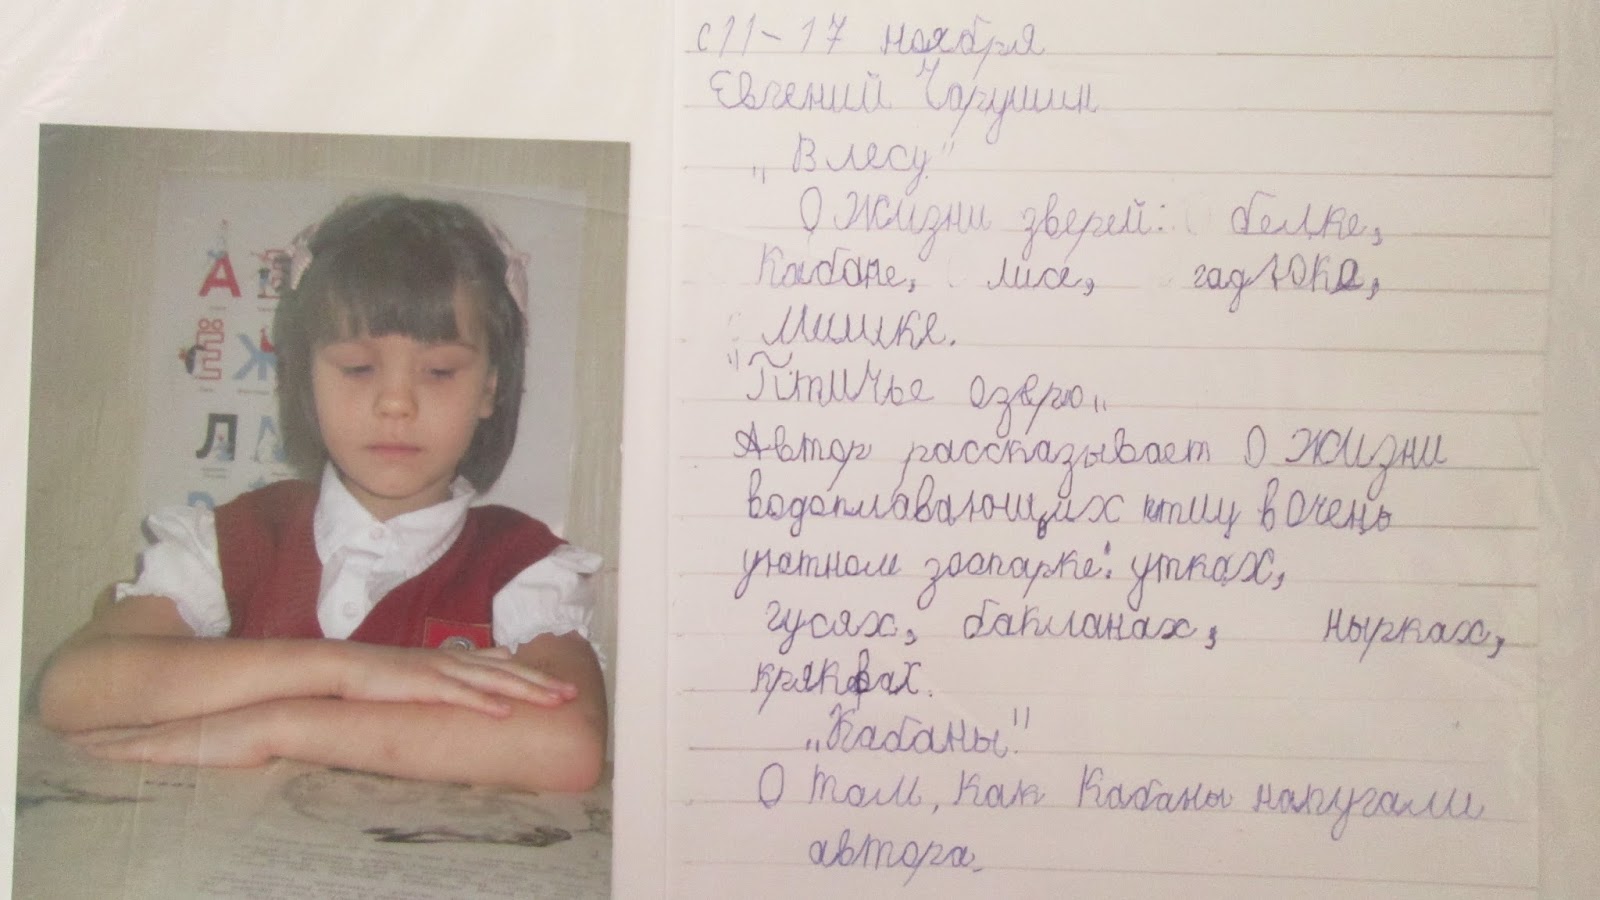 с 11 - 17 ноября
Евгений Чарушин
„ В лесу"
О Жизни зверей: белке,
Кабане, лисе, гадЮке,
Мишке.
"Птичье озеро„
Автор рассказывает О Жизни
водоплавающих птиц в Очень
уютном зоопарке: утках,
гусях, бакланах, нырках,
кряквах.
„Кабаны!"
О том, Как Кабаны напугали
автора.
А
Ж
Л